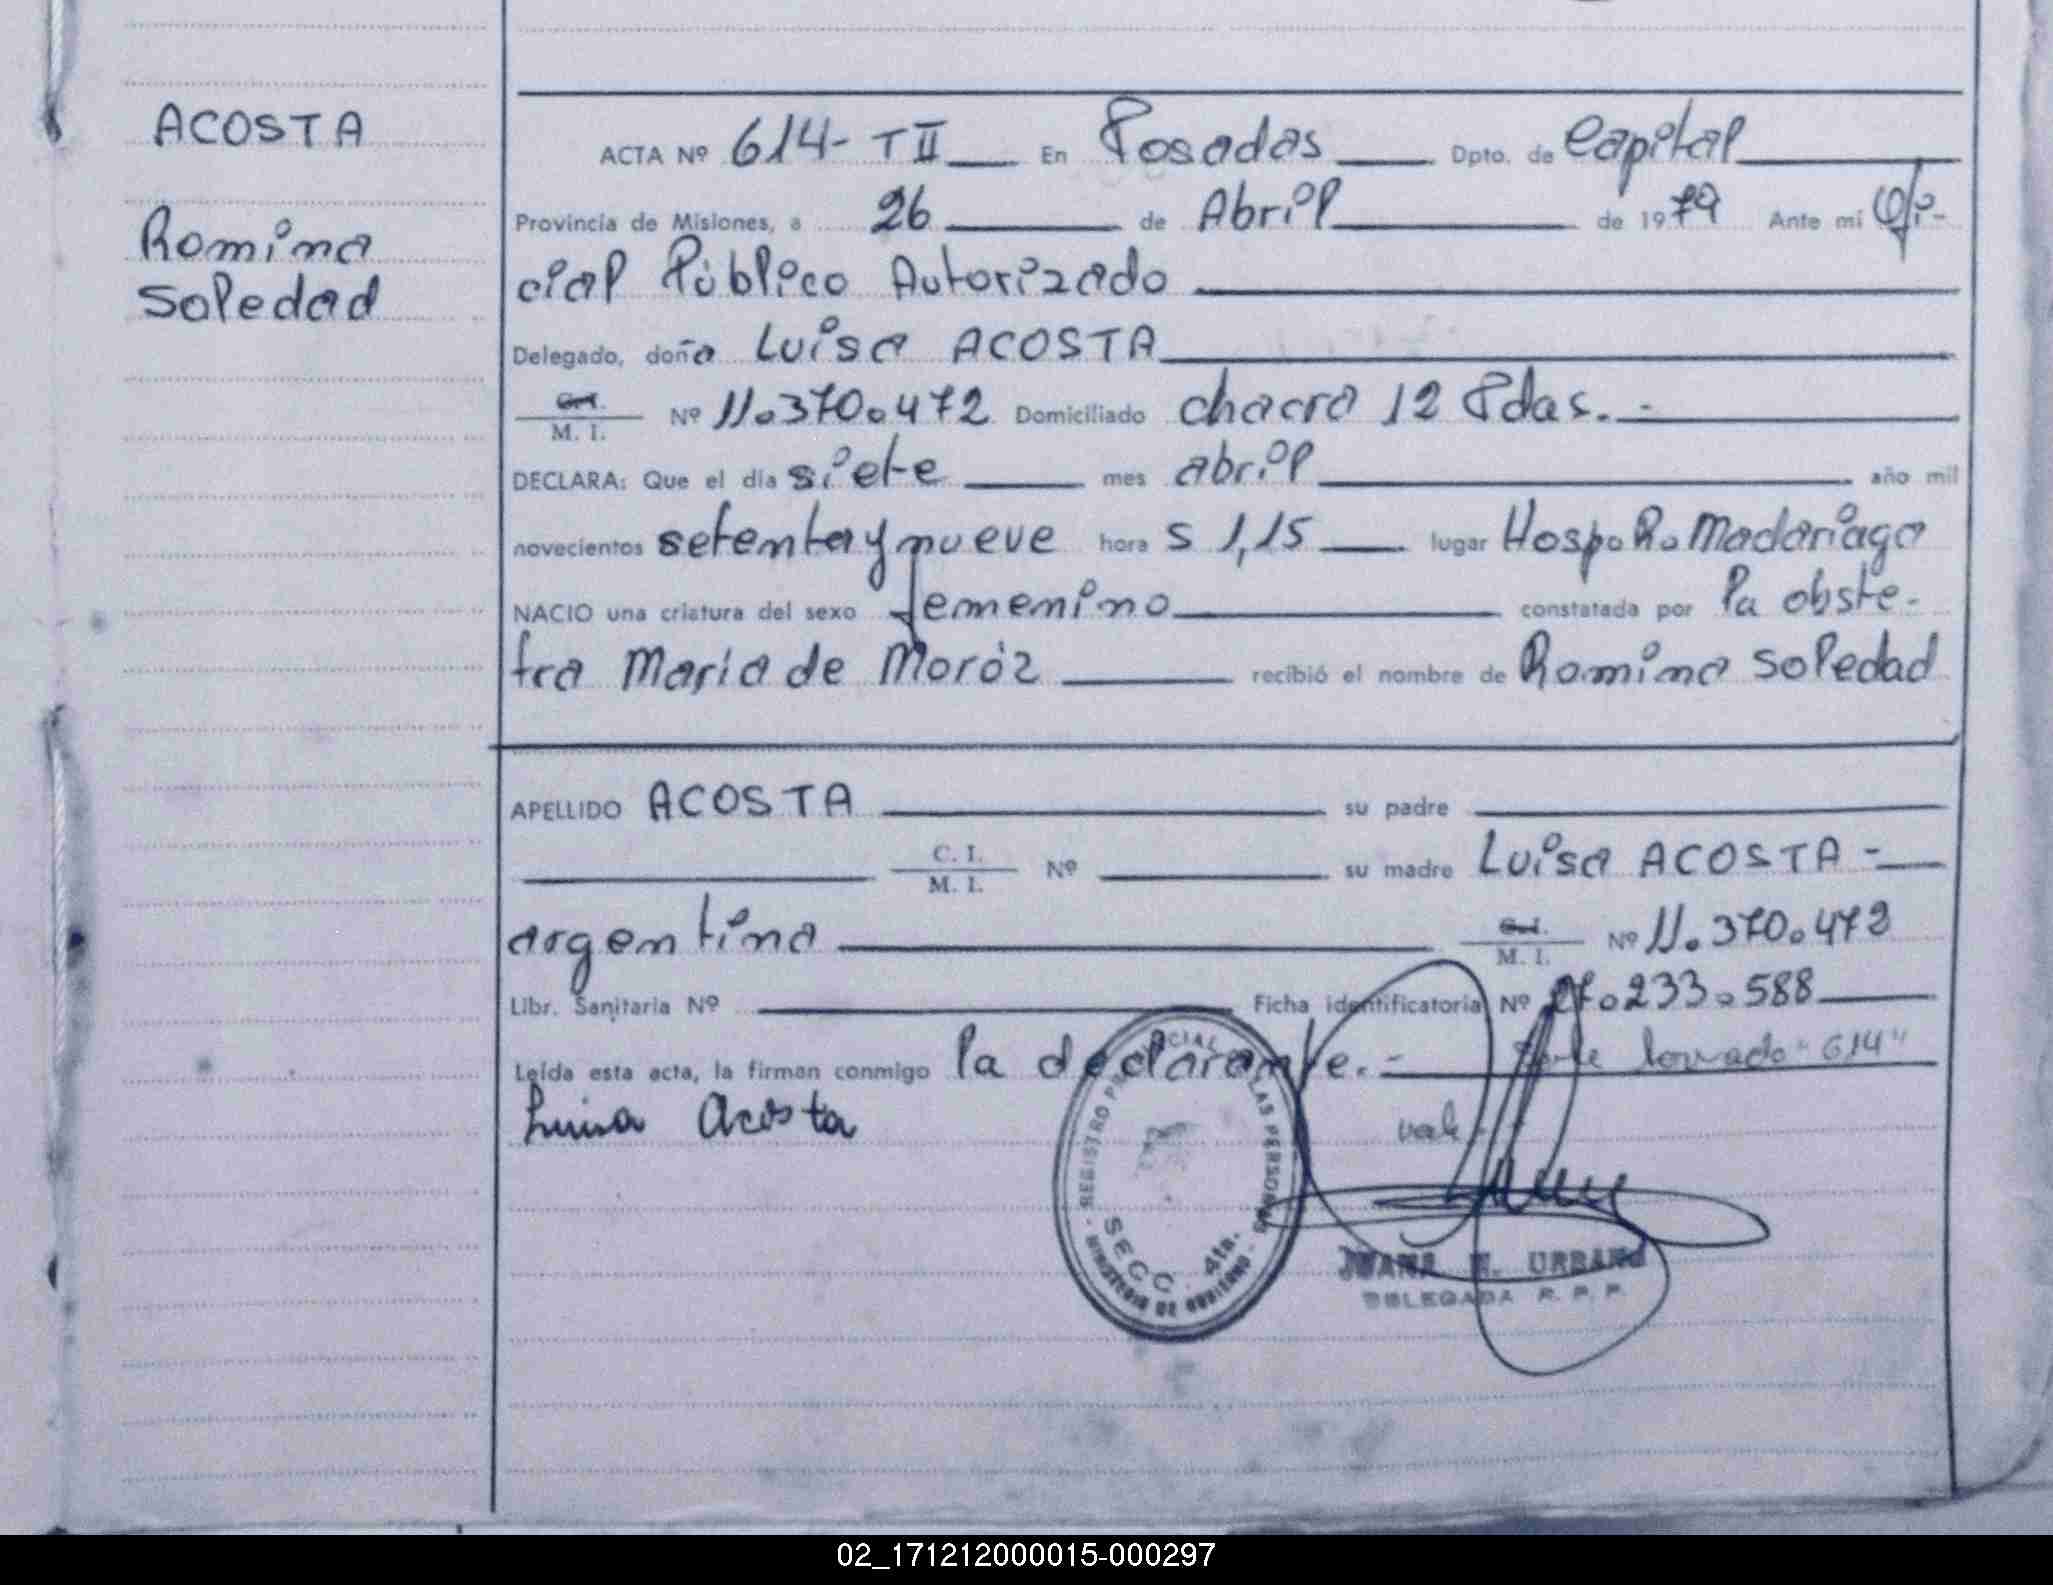 ACOSTA
Romina
Soledad
ACTA Nº 614- T II En Posadas Dpto. de Capital
Provincia de Misiones, a 26 de Abril de 1979 Ante mi Ofi-
cial Público Autorizado
Delegado, doña Luisa ACOSTA
C.I. M. I. Nº 11.370.472 Domiciliado chacra 12 Pdas.-
DECLARA: Que el día siete mes abril año mil
novecientos setenta y nueve hora s 1,15 lugar Hosp. R. Madariaga
NACIO una criatura del sexo femenino constatada por la obste-
tra Maria de Moróz recibió el nombre de Romina Soledad
APELLIDO ACOSTA su padre
C. I. M. I. Nº su madre Luisa ACOSTA -
argentina C.I. M. I. Nº 11.370.472
Libr. Sanitaria Nº Ficha identificatoria Nº 27.233.588
Leída esta acta, la firman conmigo la declarante.- "614"
Luisa Acosta vale
REGISTRO PROVINCIAL DE LAS PERSONAS
SECC. 4ta.
- MINISTERIO DE GOBIERNO -
JUANA URBANO
DELEGADA R. P. P.
02_171212000015-000297